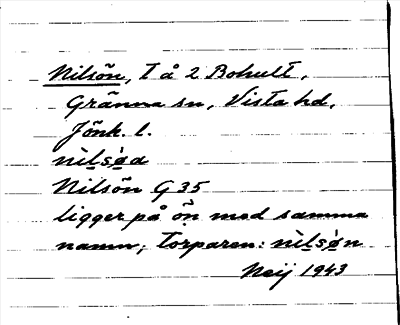 Nilsön, t å 2 Bohult,
Gränna sn, Vista hd,
Jönk. l.
nìlsø̀a
Nilsön G 35
ligger på ön med samma
namn; torparen: nìlsø̀n
Neij 1943